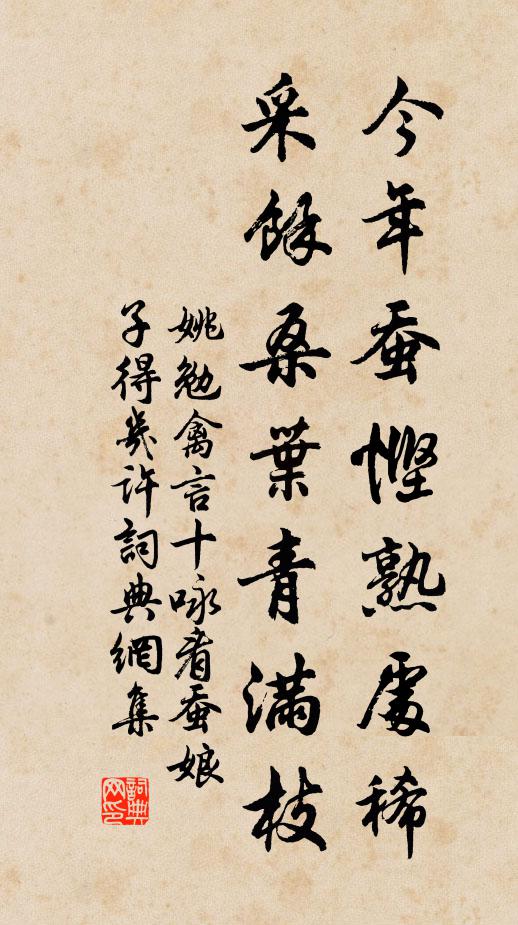 今年蚕悭熟處稀
采餘桑葉青滿枝
姚勉禽言十咏看蚕娘
子得幾許詞典網集
詞典网印